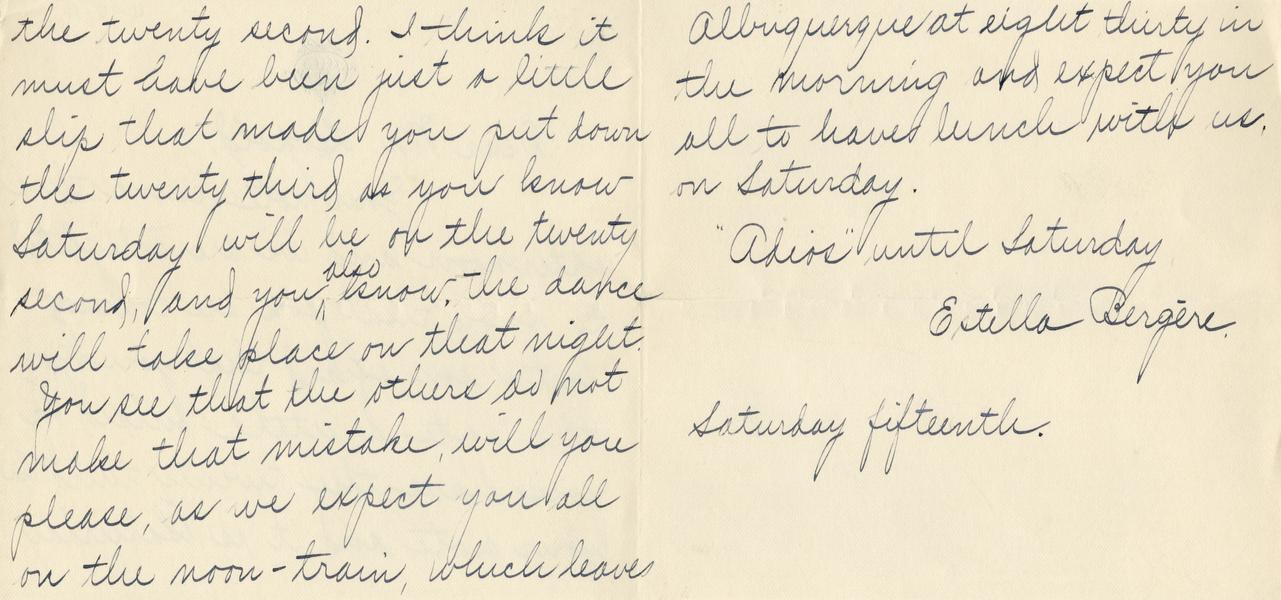 the twenty second. I think it
must have been just a little
slip that made you put down
the twenty third as you know
Saturday will be on the twenty
second, and you also know, the dance
will take place on that night.
You see that the others do not
make that mistake, will you
please, as we expect you all
on the noon-train, which leaves
Albuquerque at eight thirty in
the morning and expect you
all to have lunch with us,
on Saturday.
"Adios" until Saturday
Estella Bergère.
Saturday fifteenth.